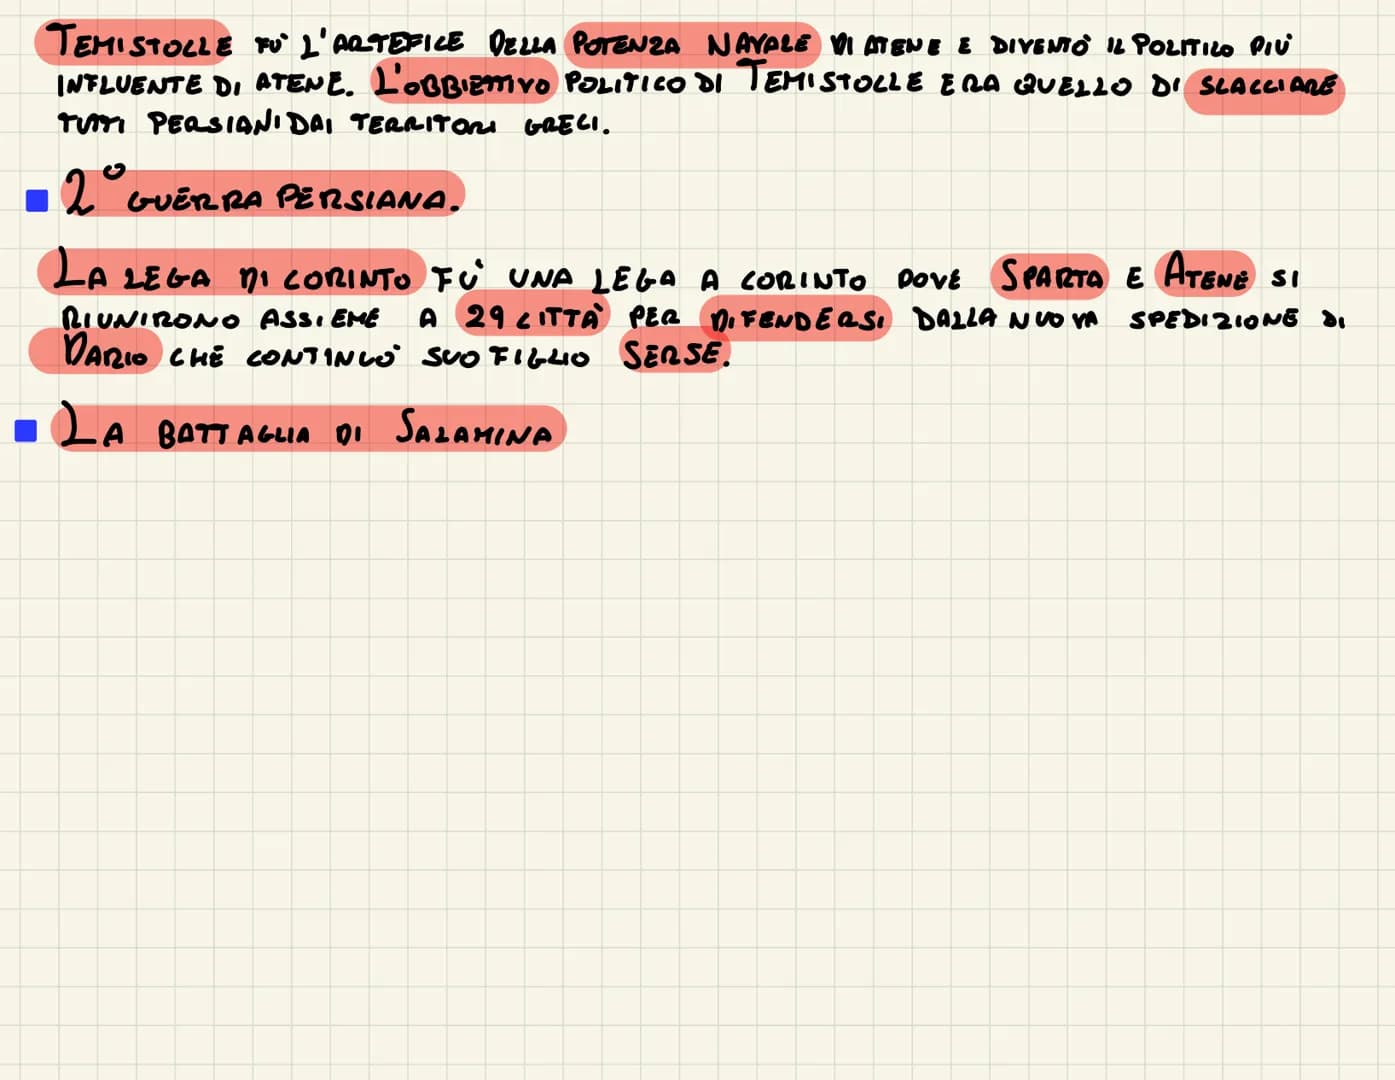 TEMISTOCLE FÙ L'ARTEFICE DELLA POTENZA NAVALE DI ATENE E DIVENTÒ IL POLITICO PIÙ
INFLUENTE DI ATENE. L'OBBIETTIVO POLITICO DI TEMISTOCLE ERA QUELLO DI SCACCIARE
TUTTI PERSIANI DAI TERRITORI GRECI.
2° GUERRA PERSIANA.
LA LEGA DI CORINTO FÙ UNA LEGA A CORINTO DOVE SPARTA E ATENE SI
RIUNIRONO ASSIEME A 29 CITTÀ PER DIFENDERSI DALLA NUOVA SPEDIZIONE DI
DARIO CHE CONTINUÒ SUO FIGLIO SERSE.
LA BATTAGLIA DI SALAMINA